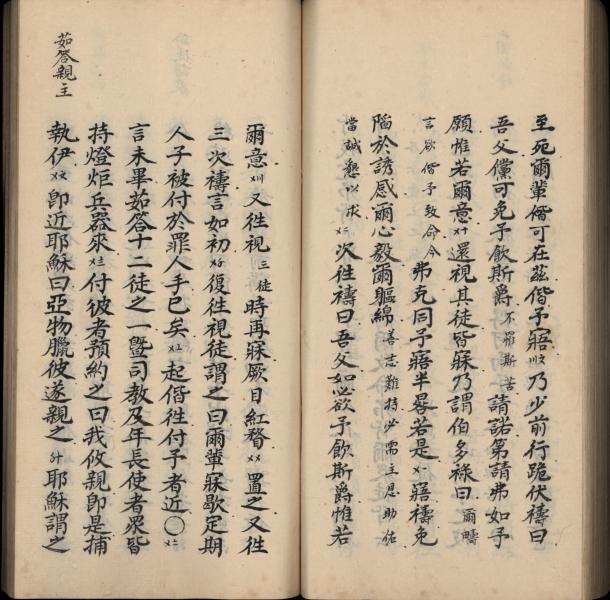 至死爾輩偕可在茲偕予寤〢乃少前行跪伏禱曰
吾父儻可免予飲斯爵不罹斯苦請諾第請弗如予
願惟若爾意〤十還視其徒皆寐乃謂伯多祿曰爾疇
言欲偕予致命今弗克同予寤半晷若是〤〡寤禱免
陷於誘感爾心毅爾軀綿善志難持必需主恩助佑
當誠懇以求〤二次徃禱曰吾父如必欲予飲斯爵惟若
爾意〤〢又徃視三徒時再寐厥目紅瞀〤〤置之又徃
三次禱言如初〤〥復徃視徒謂之曰爾輩寐歇定期
人子被付於罪人手巳矣〤〦起偕徃付予者近〇〤〧
言未畢茹答十二徒之一暨司教及年長使者眾皆
持燈炬兵器來〤〨付彼者預約之曰我攸親即是捕
執伊〤〩卽近耶穌曰亞物臘彼遂親之〥十耶穌謂之
茹答親主